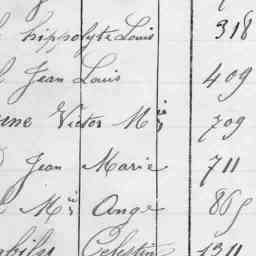 hippolyte Louis 318
Jean Louis 409
Victor Mie 709
Jean Marie 711
Mie Ange 865
Celestin 1311